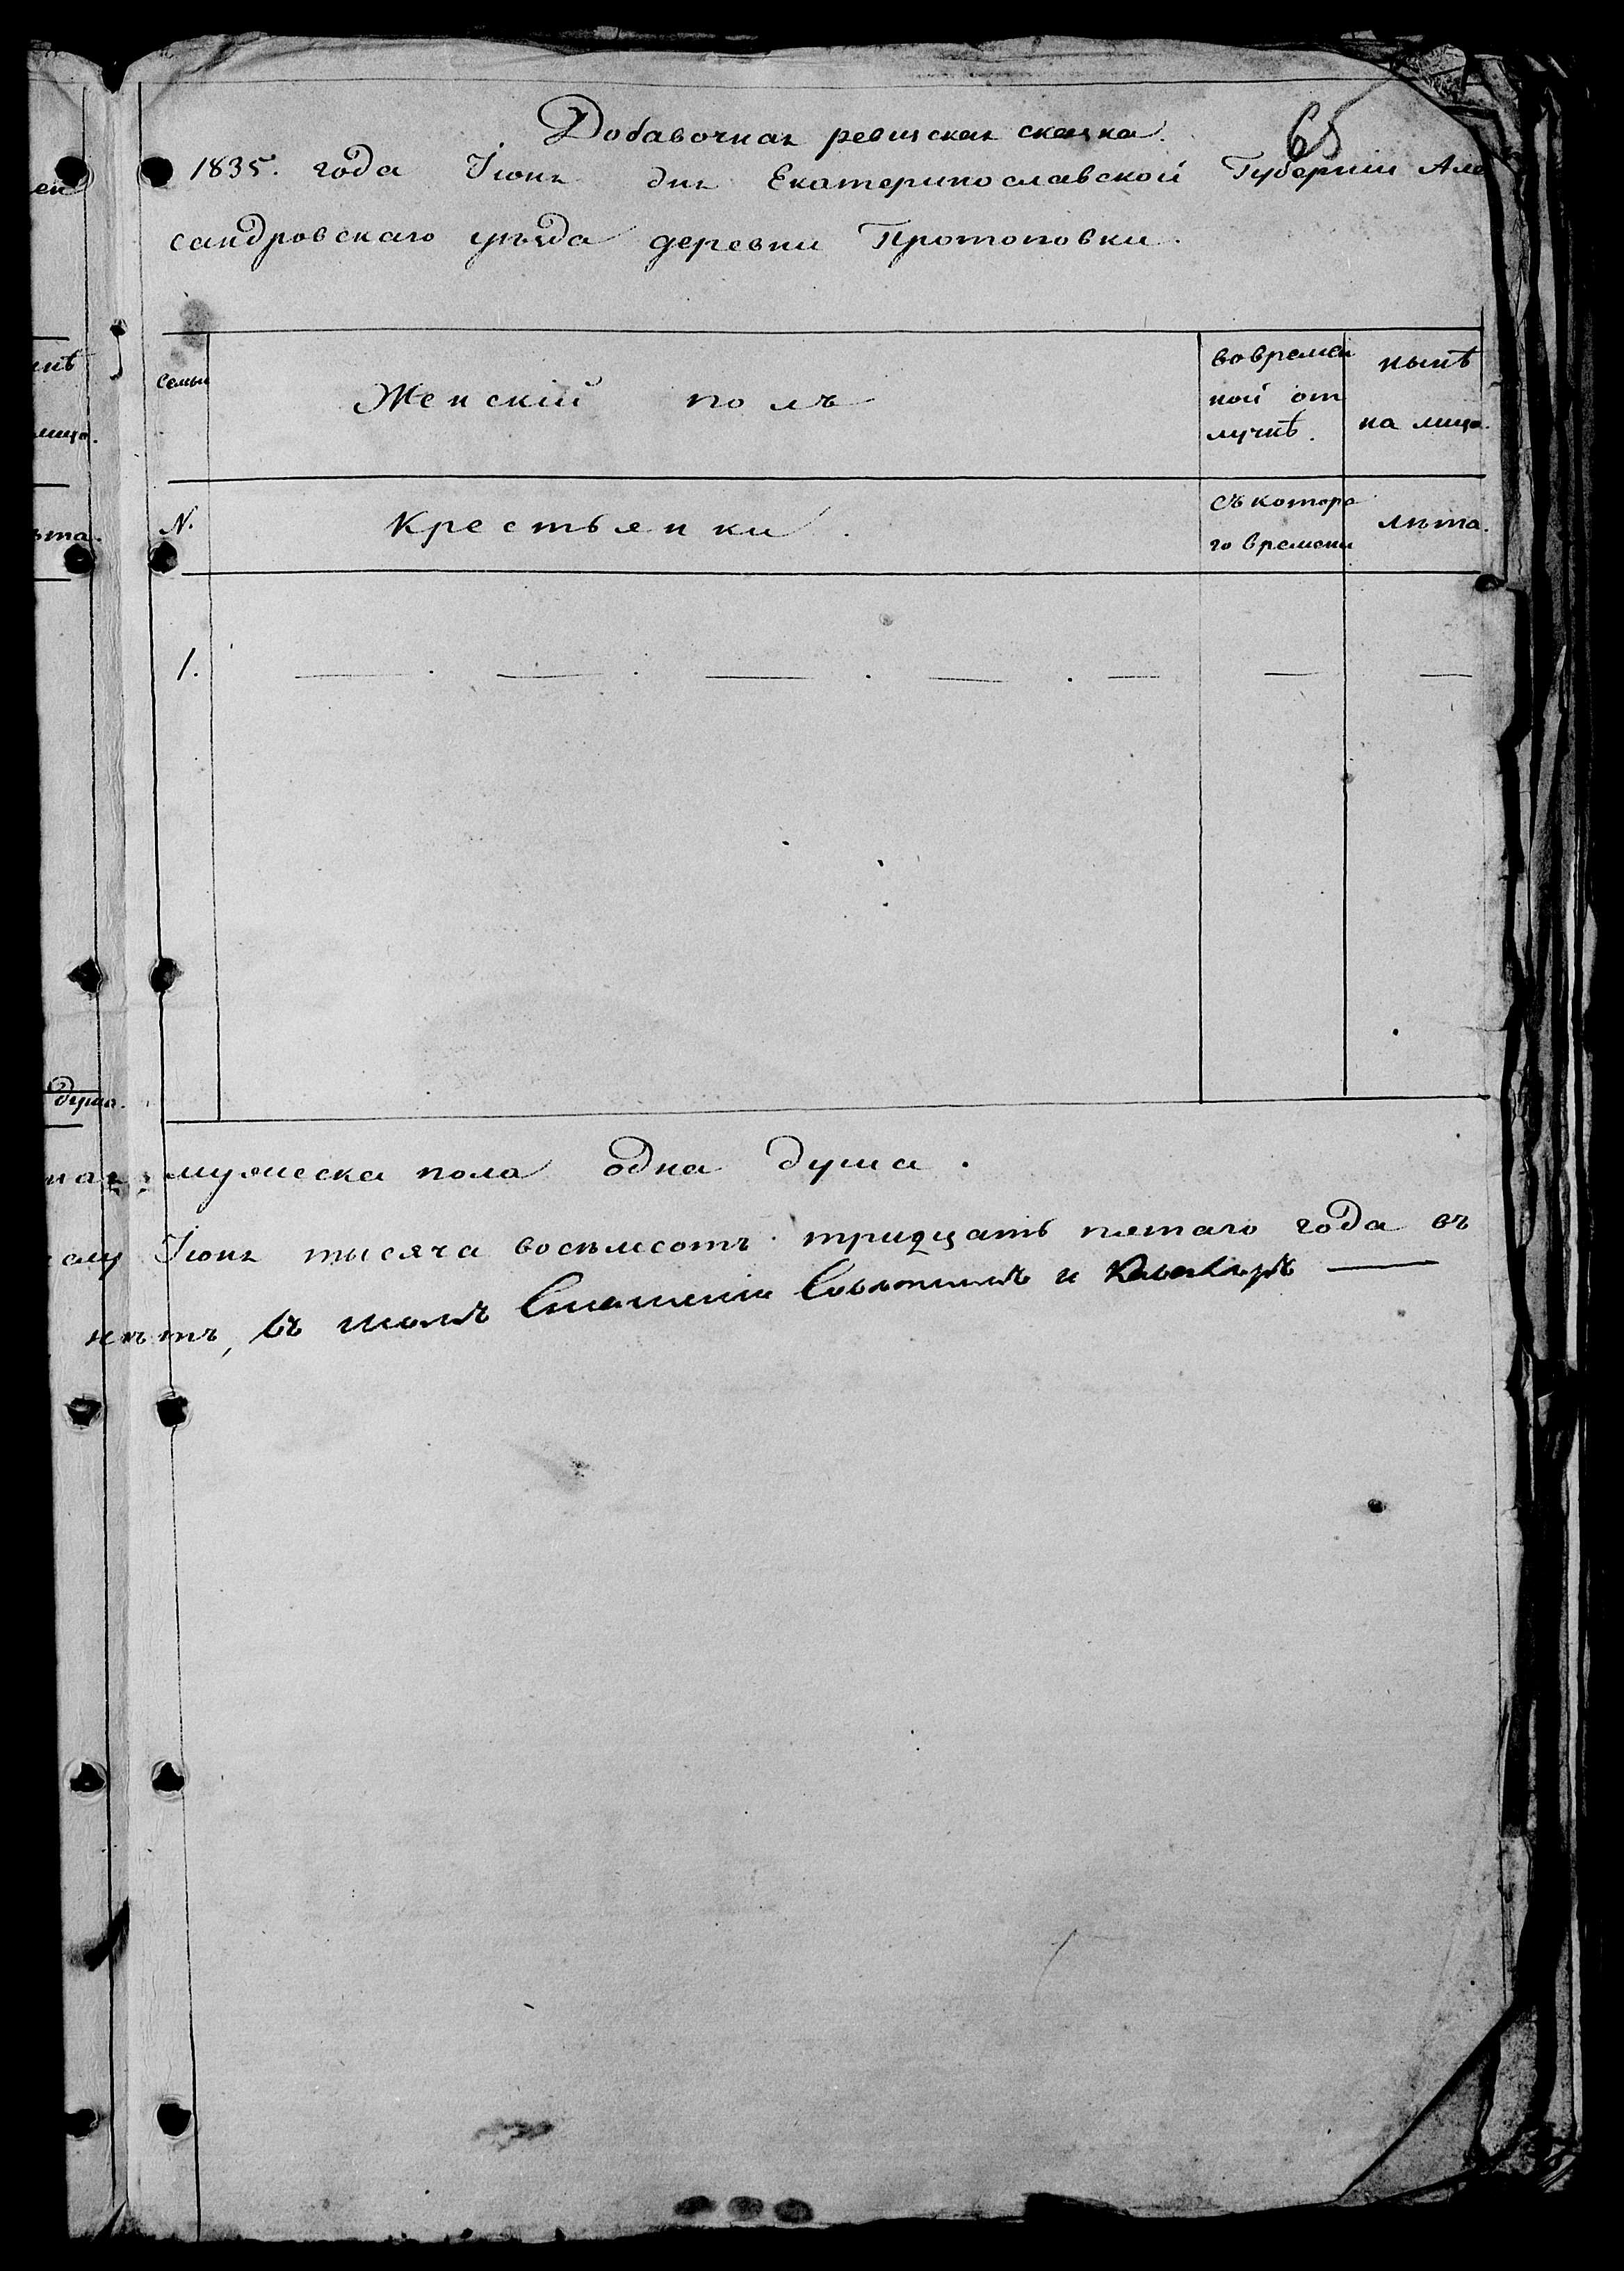 65
Добавочная ревизская сказка.
1835. года Іюня дня Екатеринославской Губерніи Алек
сандровскаго уѣзда деревни Протоповки.
семьи
Женскій полъ
вовремен
ной от
лучкѣ.
нынѣ
на лицо.
N.
Крестьянки.
съ которо
го времени
лѣта.
1.
душа.
мужеска пола одна душа.
Іюня тысяча восемьсотъ тридцать пятаго года въ
нѣтъ, въ томъ